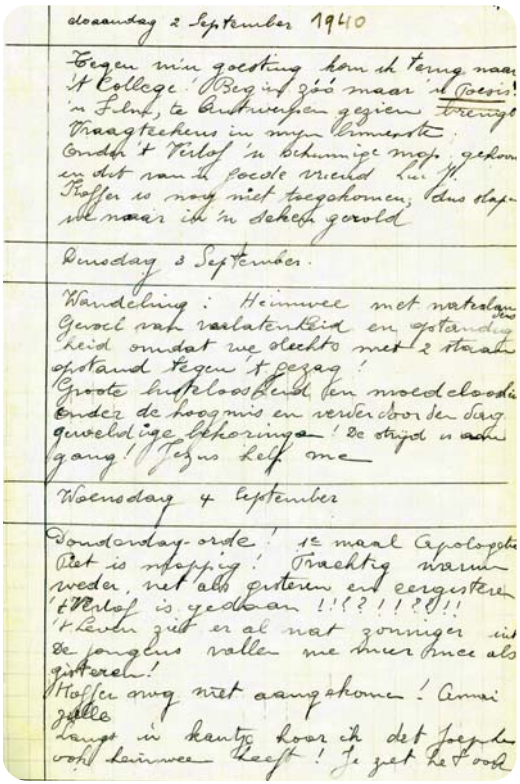 maandag 2 September 1940
Tegen m'n goesting kom ik terug naar
't College! Begin zóó maar 'n Poësis!
'n Film, te Antwerpen gezien brengt
Vraagteekens in mijn binnenste.
Onder 't Verlof 'n schunnige mop gehoord
en dit van 'n goede vriend
Koffer is nog niet toegekomen, dus slapen
we maar in 'n deken gerold
Dinsdag 3 September.
Wandeling: Heimwee met waterlanders
Gevoel van verlatenheid en opstandig
heid omdat we slechts met 2 staan
opstand tegen 't gezag!
Groote lusteloosheid en moedeloosheid
onder de hoogmis en verder door den dag
geweldige bekoringen! De strijd is aan
gang! Jezus help me
Woensdag 4 September
Donderdag-orde! 1e maal Apologetica
Piet is moppig! Prachtig warm
weder, net als gisteren en eergisteren
't Verlof is gedaan !!!??!!??!!
't Leven ziet er al wat zonniger uit
De jongens vallen me meer mee als
gisteren!
Koffer nog niet aangekomen! Amai
zulle
Langs 'n kantje hoor ik dat Joeph
ook heimwee heeft! Je ziet het ook